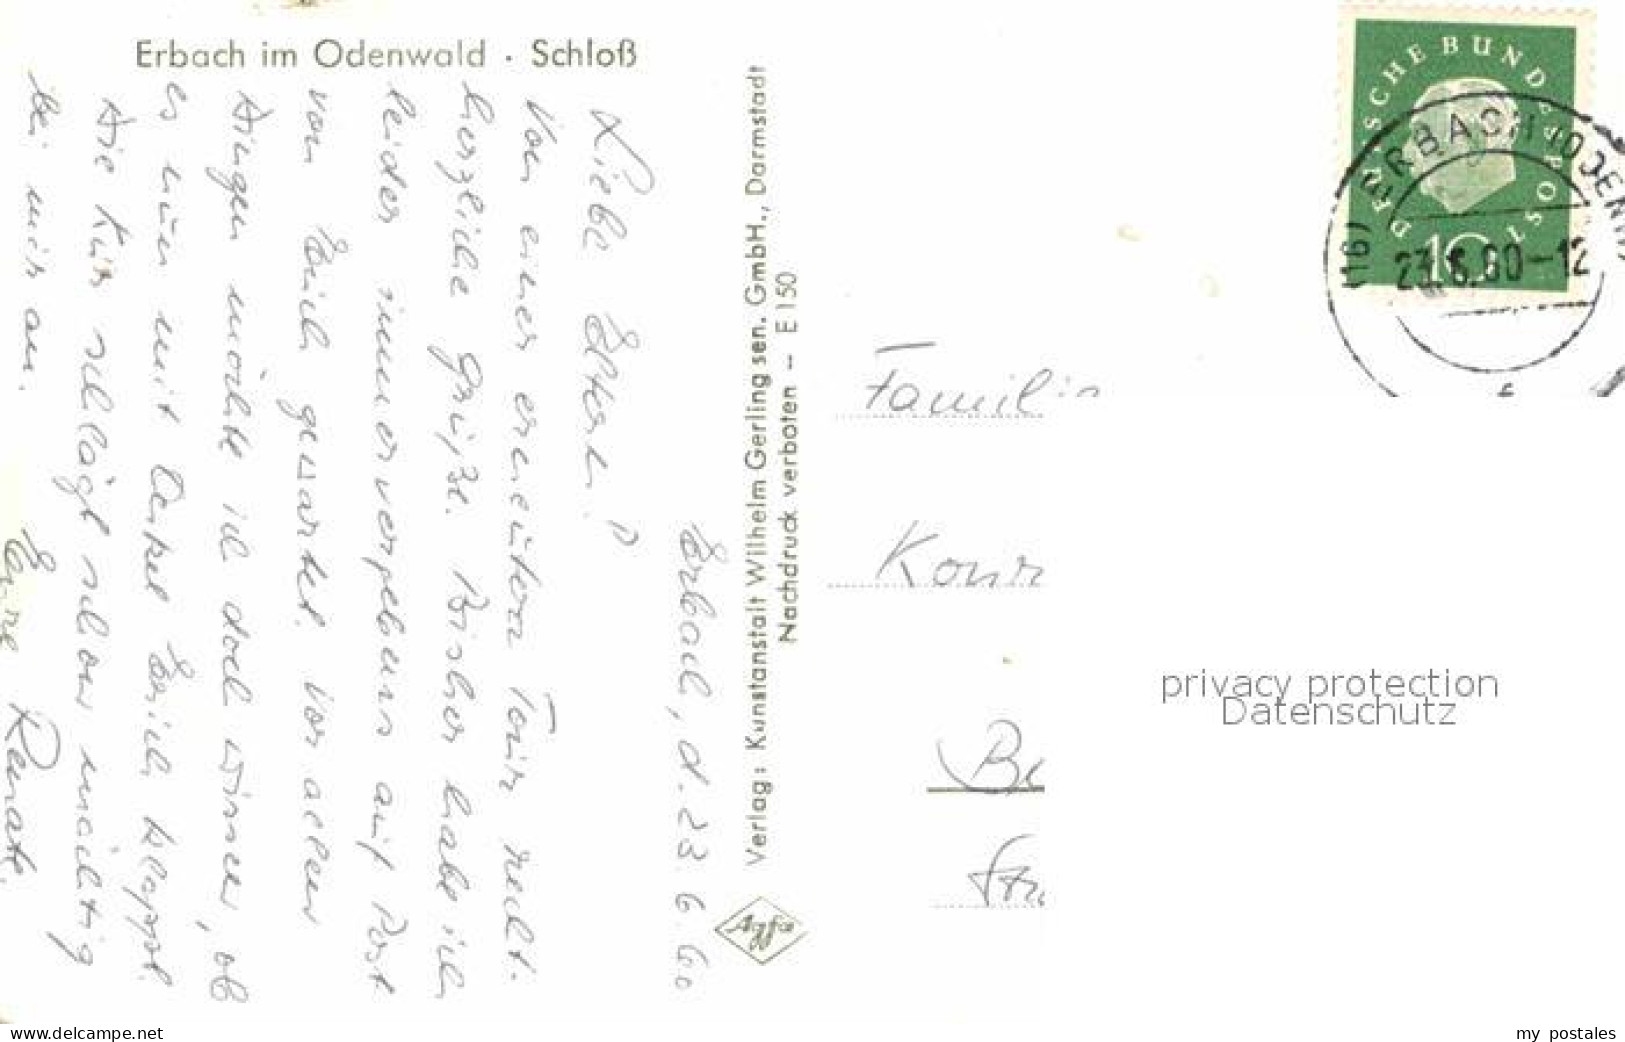 Erbach im Odenwald · Schloß
Erbach, d. 23.6.60
Liebe Eltern!
Von einer erneuten Tour recht
herzliche Grüße. Bisher habe ich
leider immer vergebens auf Post
von Euch gewartet. Vor allen
Dingen möchte ich doch wissen, ob
es nun mit Onkel Erich klappt.
Die Kur schlägt schon mächtig
bei mir an.
Eure Renate.
Verlag: Kunstanstalt Wilhelm Gerling sen. GmbH., Darmstadt
Nachdruck verboten — E 150
Agfa
DEUTSCHE BUNDESPOST
10
(16) ERBACH (ODENW
23.6.60-12
Familie
Konr
privacy protection
Datenschutz
www.delcampe.net
my_postales